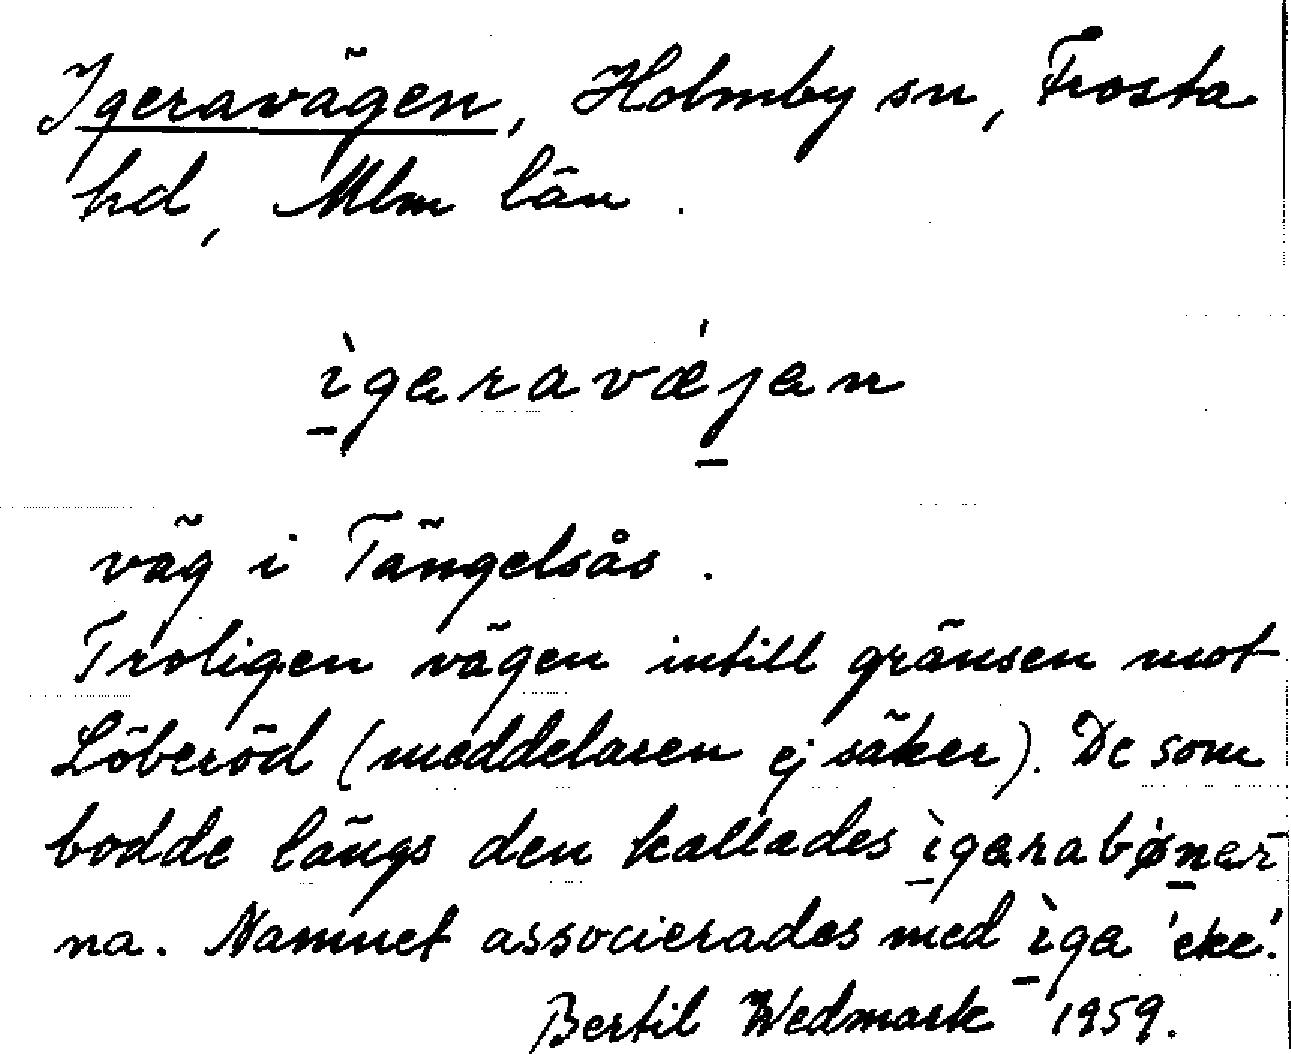 Igeravägen, Holmby sn, Frosta
hd, Mlm län.
ìgaravǽjan
väg i Tängelsås.
Troligen vägen intill gränsen mot
Löberöd (meddelaren ej säker). De som
bodde längs den kallades ìgarabǿnar-
na. Namnet associerades med ìga 'eke'.
Bertil Wedmark 1959.